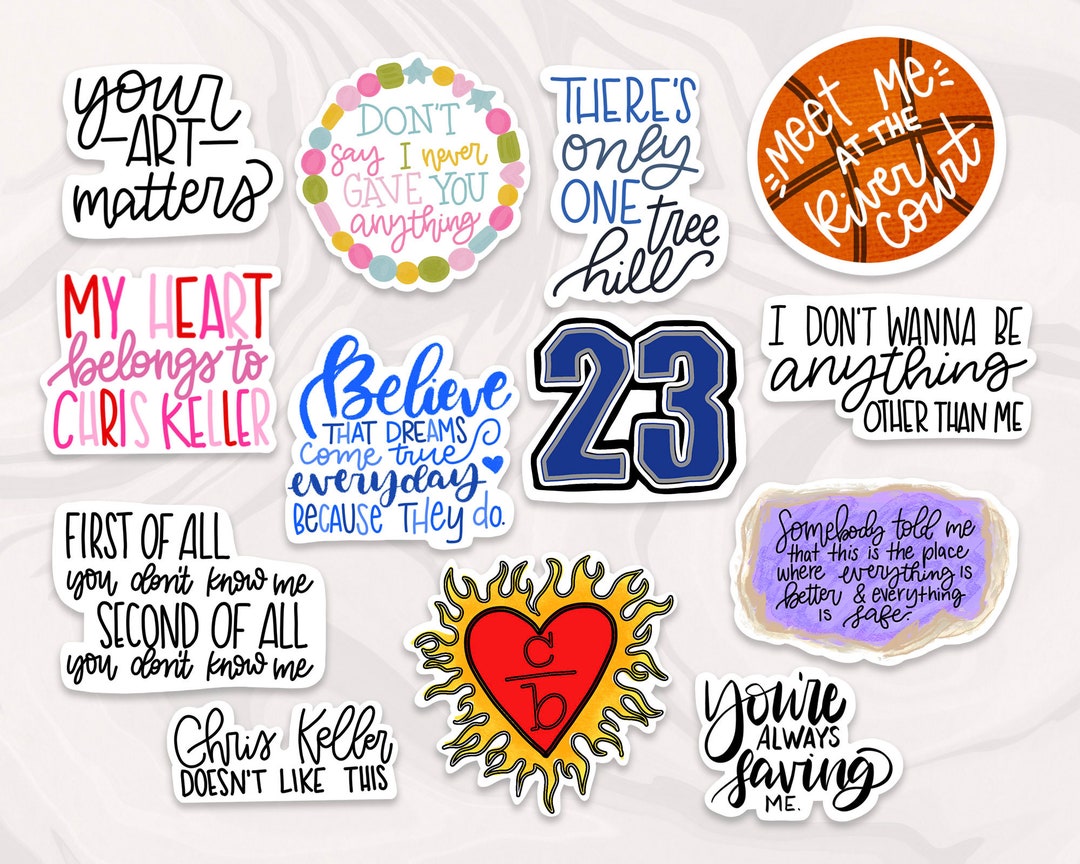 your
ART
matters
DON'T
say I never
GAVE YOU
anything
THERE'S
only
ONE tree
hill
MEET ME
AT THE
River
court
MY HEART
belongs to
CHRIS KELLER
Believe
THAT DREAMS
come true
everyday
BECAUSE THEY do.
23
I DON'T WANNA BE
anything
OTHER THAN ME
FIRST OF ALL
you don't know me
SECOND OF ALL
you don't know me
c
b
Somebody told me
that this is the place
where everything is
better & everything
is safe.
Chris Keller
DOESN'T LIKE THIS
You're
ALWAYS
saving
ME.